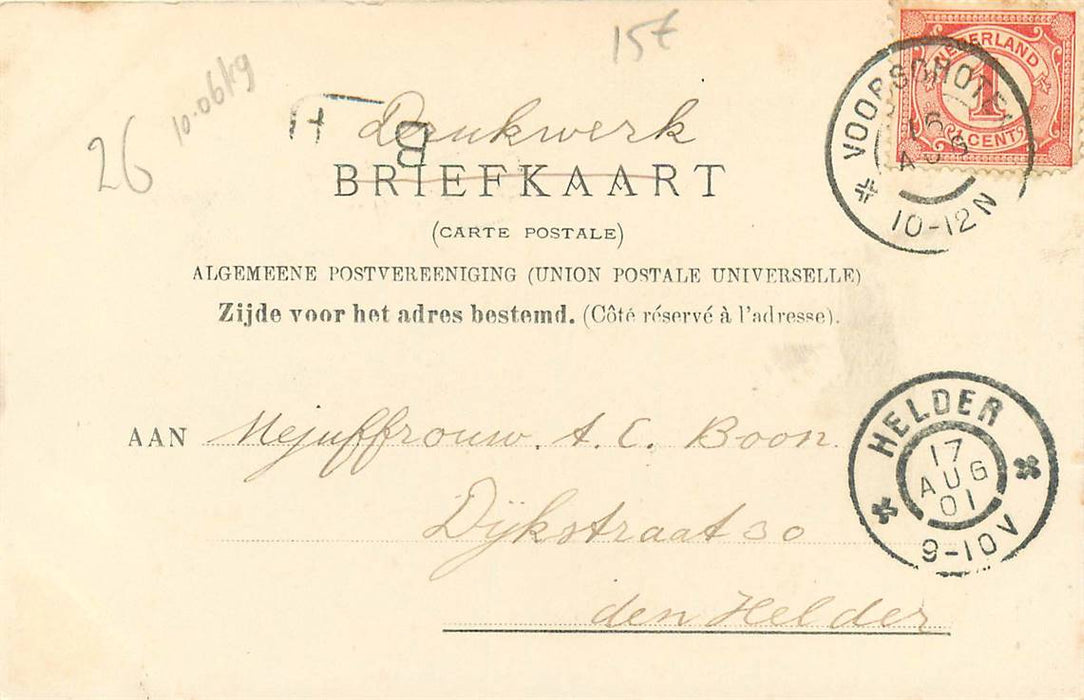 15€
26
10.0619
Drukwerk
H
B
BRIEFKAART
(CARTE POSTALE)
ALGEMEENE POSTVEREENIGING (UNION POSTALE UNIVERSELLE)
Zijde voor het adres bestemd. (Côté réservé à l'adresse).
NEDERLAND
1
CENT
VOORSCHOTEN
16
AUG
10-12N
AAN Mejuffrouw. A. C. Boon.
Dijkstraat 30
den Helder
HELDER
17
AUG
01
9-10V